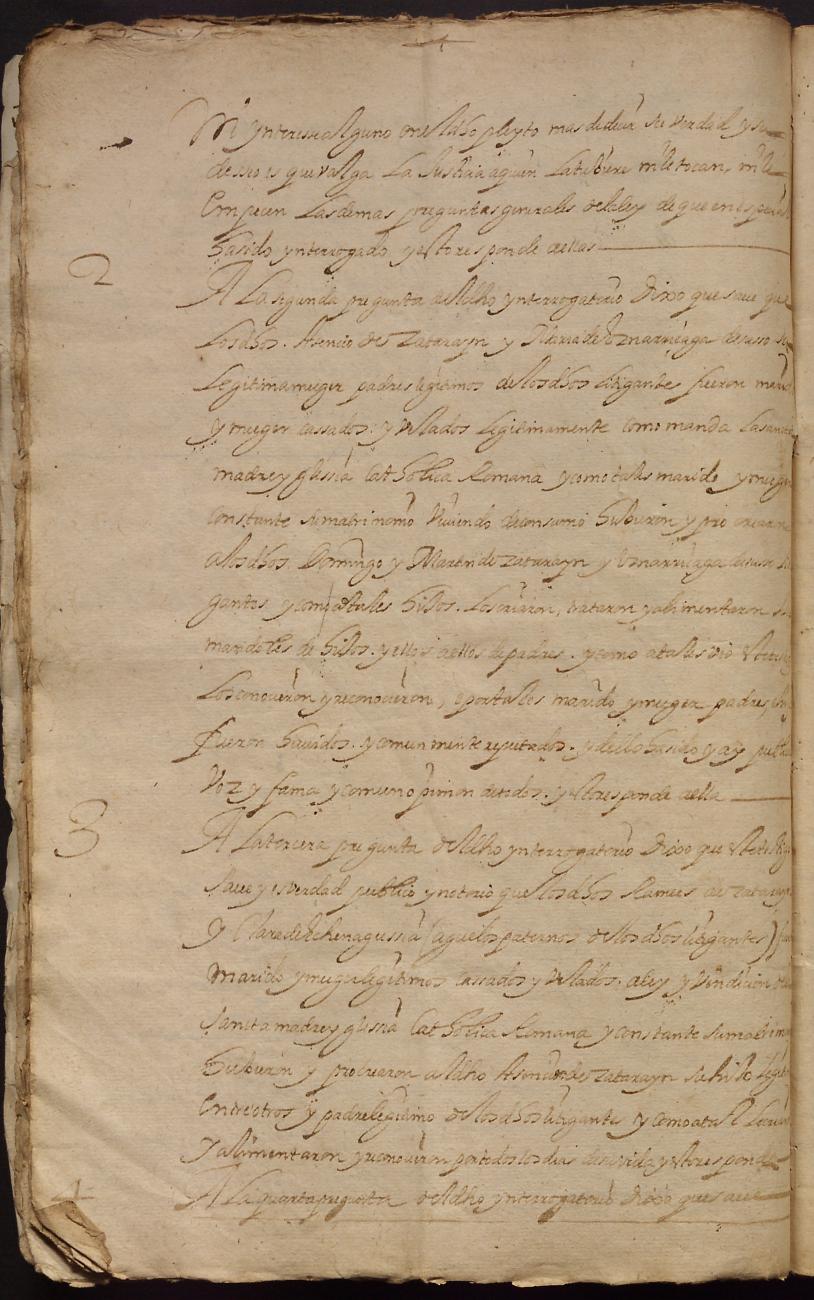 Ni ynteresse alguno en el dho pleyto mas de decir su verdad y su
desseo es que valga la Justicia a quien la tubiere ni le tocan ni le
Empecen las demas preguntas generales de la ley de que en especial
ha sido ynterrogado y esto responde a ellas
2
A la segunda pregunta del dho ynterrogatorio Dixo que saue que
los dhos Asencio de Zatarayn y Maria de Vznarriaga de suso su
legitima muger padres legitimos de los dhos litigantes fueron marido
y muger cassados y velados legitimamente como manda la santa
madre yglessia catholica Romana y como tales marido y muger
constante su matrimonio viuiendo de consuno hubieron y procrearon
a los dhos Domingo y Martin de Zatarayn y Vznarriaga de suso liti
gantes y como a tales hijos los criaron, trataron y alimentaron lla
mandoles de hijos y ellos a ellos de padres y como a tales vio este testigo
los conocieron y reconocieron, e por tales marido y muger padres, hijos
fueron hauidos y comunmente reputados y de ello ha sido y ay publica
voz y fama y comun opinion de todos y esto responde a ella
3
A la tercera pregunta del dho ynterrogatorio Dixo que este testigo
saue y es verdad publico y notorio que los dhos Ramus de Zatarayn
y Clara de Echenagussia (aguelos paternos de los dhos litigantes)
marido y muger legitimos cassados y velados a ley y vendicion de la
sancta madre yglessia catholica Romana y constante su matrimonio
hubieron y procrearon al dho Asencio de Zatarayn su hijo legitimo
entre otros y padre legitimo de los dhos litigantes y como a tal le criaron
y alimentaron y reconocieron por todos los dias de su vida y esto responde
4
A la quarta pregunta del dho ynterrogatorio Dixo que saue